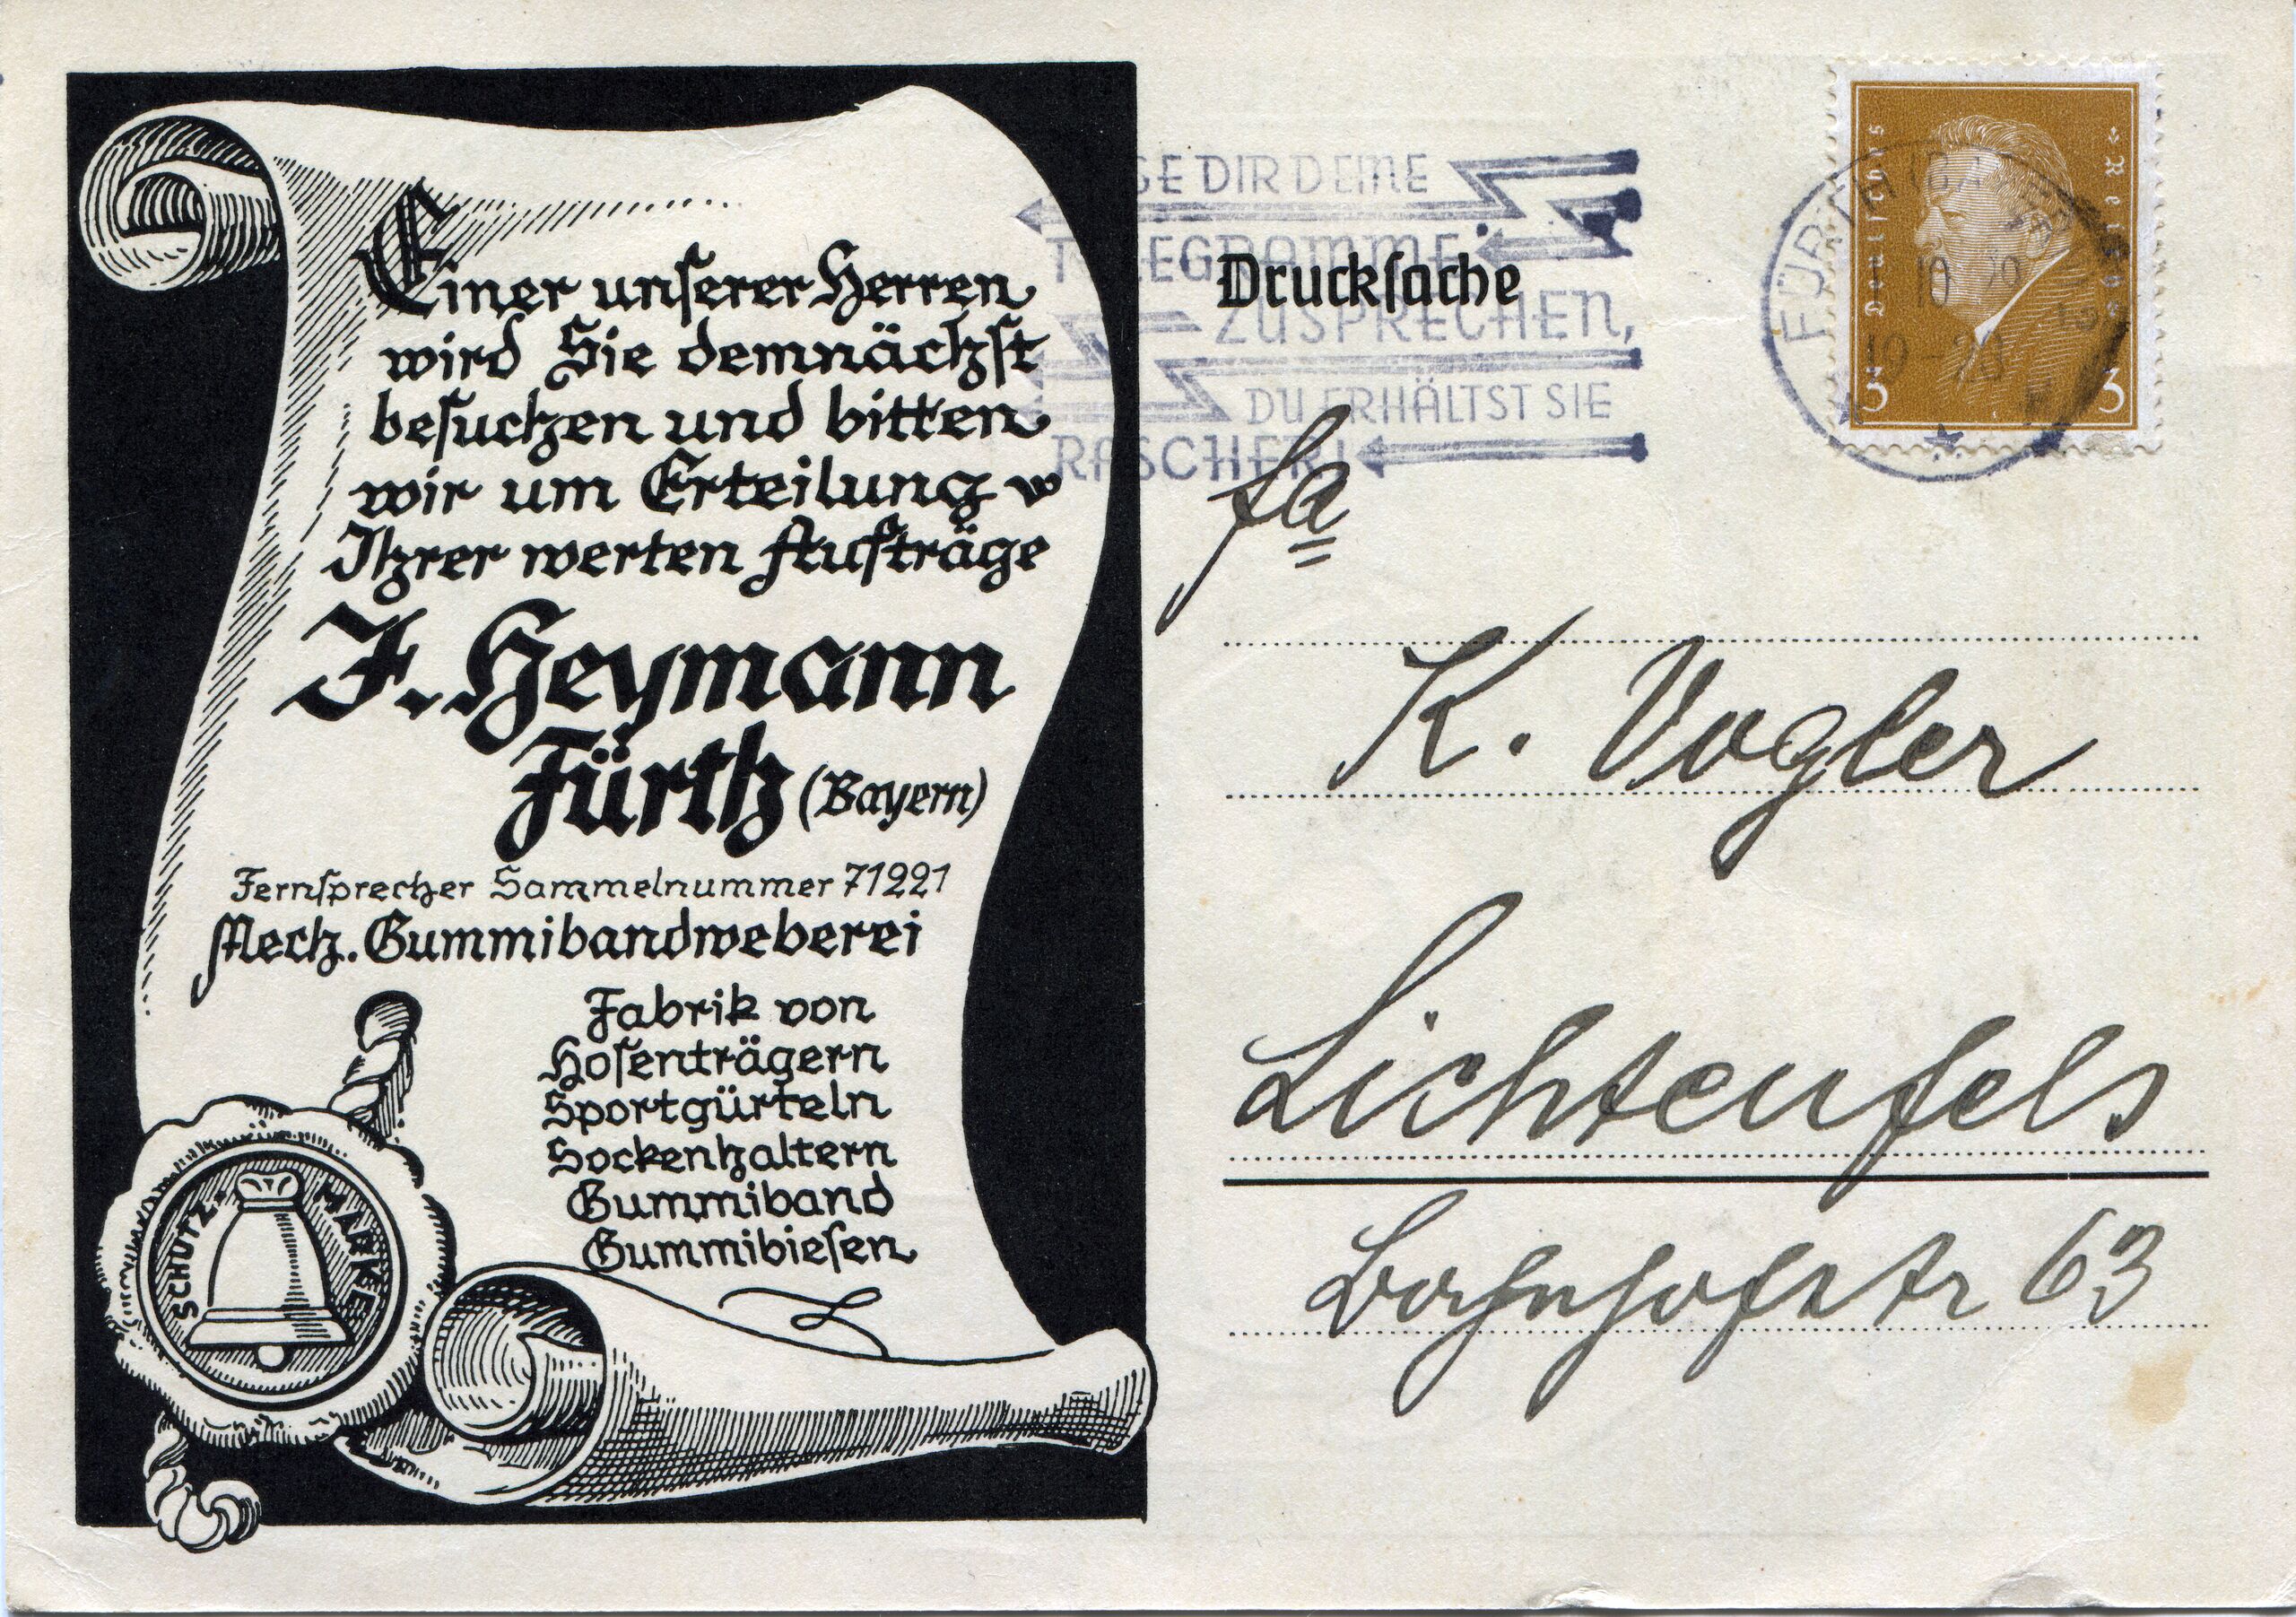 Einer unserer Herren
wird Sie demnächst
besuchen und bitten
wir um Erteilung
Ihrer werten Aufträge
J. Heymann
Fürth (Bayern)
Fernsprecher Sammelnummer 71221
Mech. Gummibandweberei
Fabrik von
Hosenträgern
Sportgürteln
Sockenhaltern
Gummiband
Gummibiesen
SCHUTZ-MARKE
DIR DEINE
TELEGRAMME
ZUSPRECHEN,
DU ERHÄLTST SIE
RASCHER!
Drucksache
FÜRTH (BAYERN)
19-20
Deutsches Reich
3 3
Fa
K. Vogler
Lichtenfels
Bahnhofstr 63